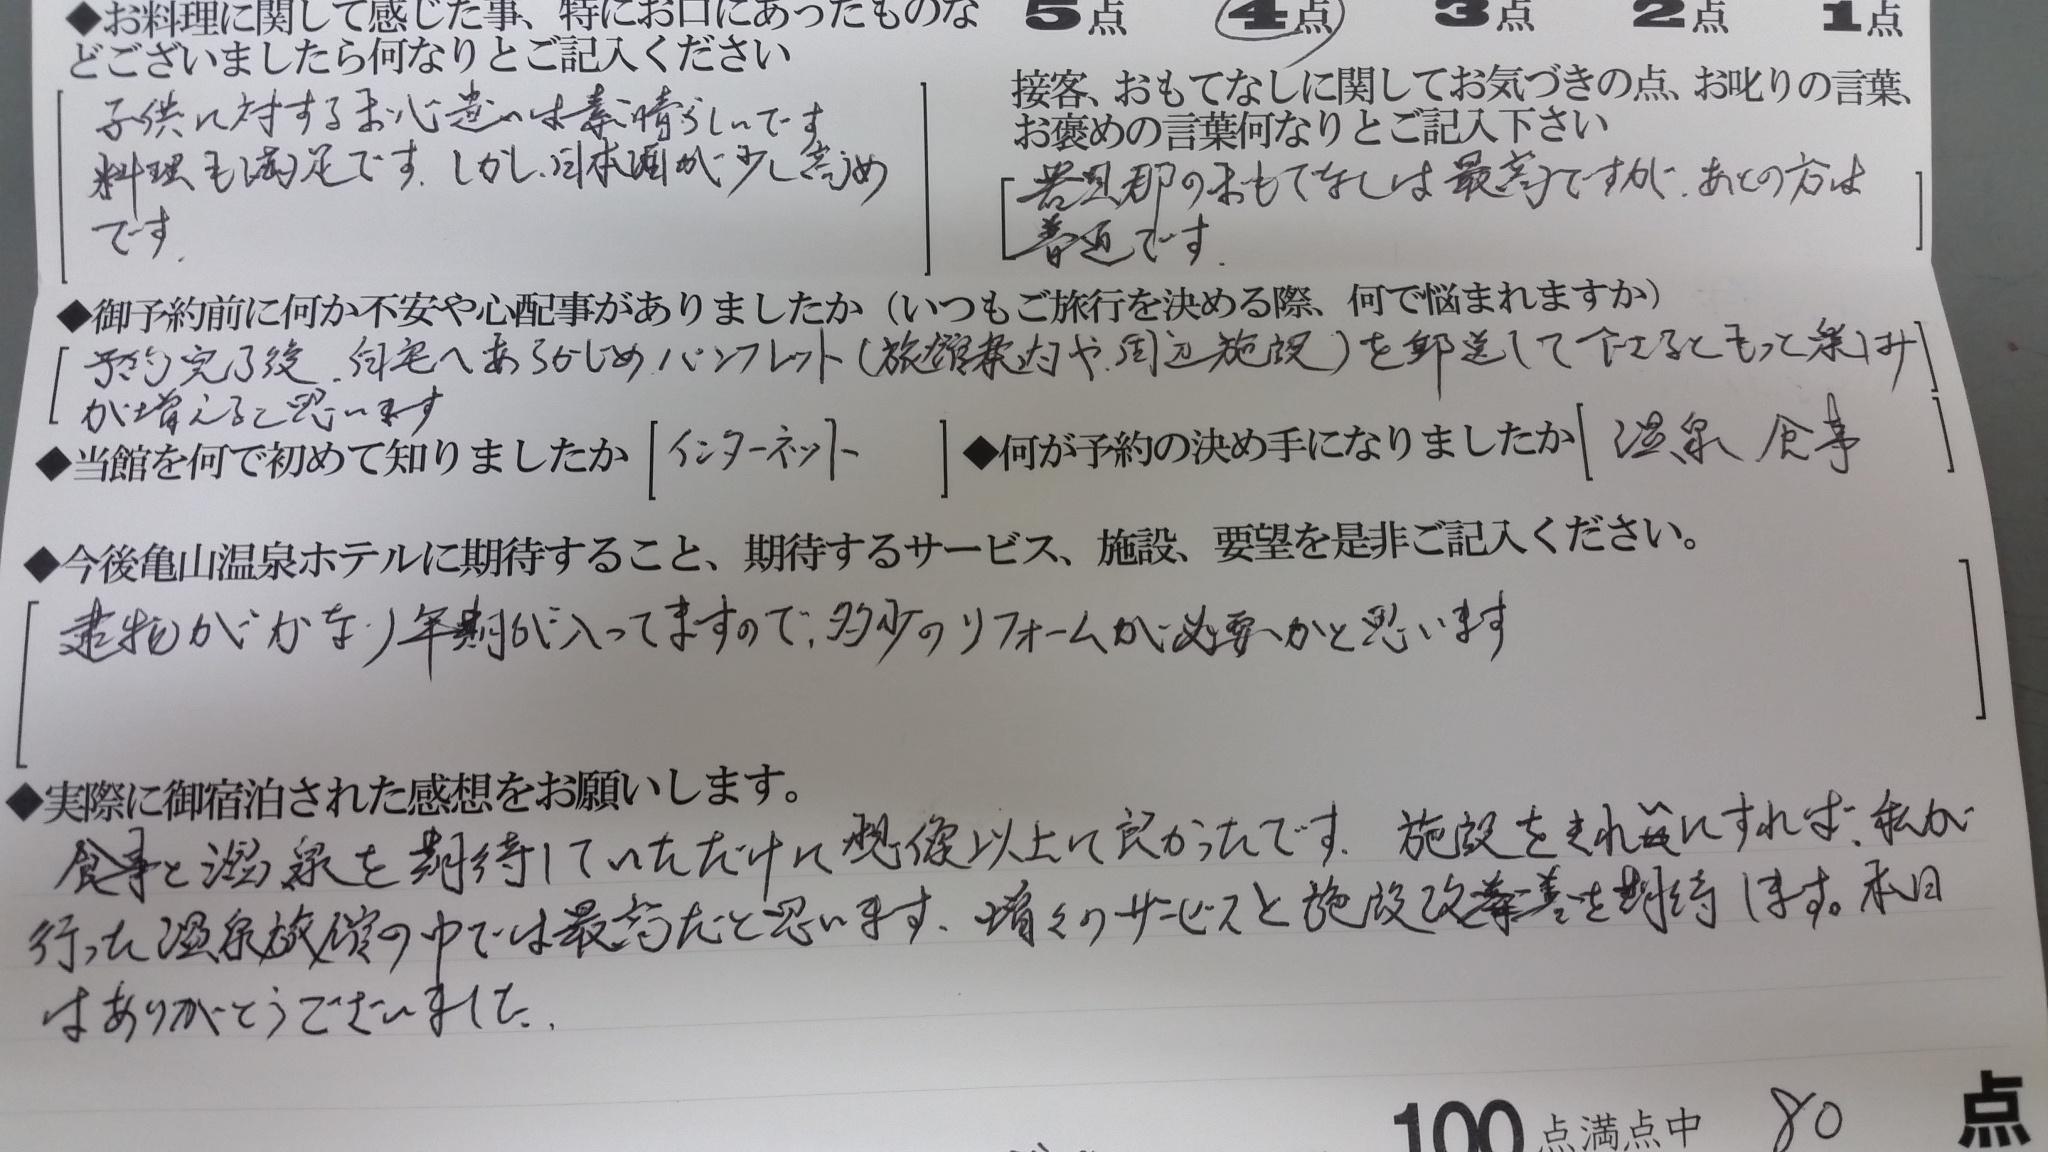 ◆お料理に関して感じた事、特にお口にあったものな
どございましたら何なりとご記入ください
子供に対するお心遣いは素晴らしいです
料理も満足です。しかし、日本酒が少し高め
です。
5点 4点 3点 2点 1点
接客、おもてなしに関してお気づきの点、お叱りの言葉、
お褒めの言葉何なりとご記入下さい
若旦那のおもてなしは最高ですが、あとの方は
普通です。
◆御予約前に何か不安や心配事がありましたか（いつもご旅行を決める際、何で悩まれますか）
予約完了後、自宅へあらかじめパンフレット(旅館案内や周辺施設)を郵送して下さるともっと楽しみ
が増えると思います
◆当館を何で初めて知りましたか [インターネット]
◆何が予約の決め手になりましたか [温泉 食事]
◆今後亀山温泉ホテルに期待すること、期待するサービス、施設、要望を是非ご記入ください。
建物がかなり年期が入ってますので、多少のリフォームが必要かと思います
◆実際に御宿泊された感想をお願いします。
食事と温泉を期待していただけに想像以上に良かったです。施設をきれいにすれば、私が
行った温泉旅館の中では最高だと思います。増々のサービスと施設改善を期待します。本日
はありがとうございました。
100点満点中 80 点